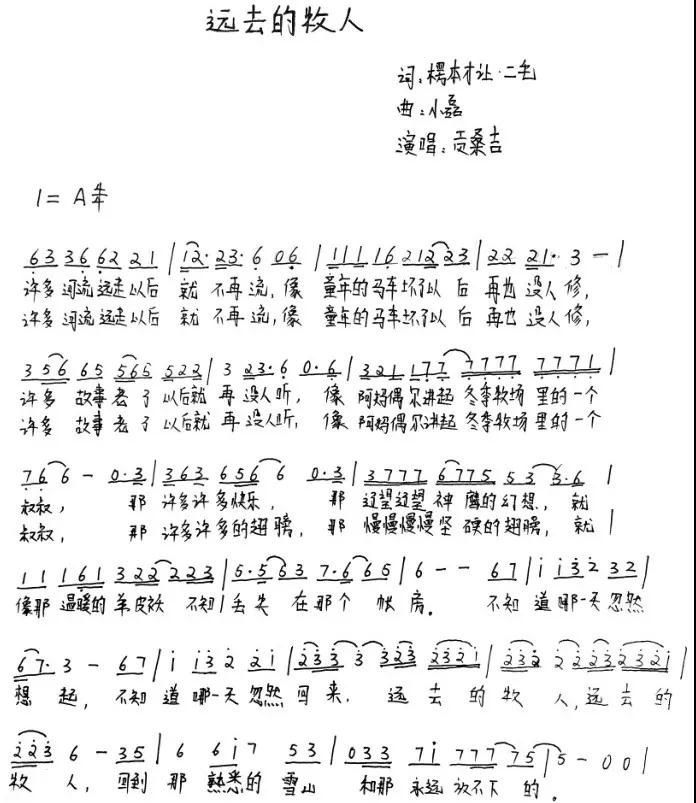 远去的牧人
词:楞本才让·二毛
曲:小磊
演唱:贡桑吉
1= A
6 3 3 6 6 2 2 1 | 1 2· 2 3· 6 0 6 | 1 1 1 1 6 2 1 2 2 3 | 2 2 2 1· 3 — |
许多河流远走以后 就 不再流,像 童年的马车坏了以 后 再也 没人 修,
许多河流远走以后 就 不再流,像 童年的马车坏了以 后 再也 没人 修,
3 5 6 6 5 5 6 5 5 2 2 | 3 2 3· 6 0·6 | 3 2 1 1 7 7 7 7 7 7 7 7 7 1 |
许多 故事 老了 以后就 再 没人听, 像 阿妈偶尔讲起 冬季牧场 里的一个
许多 故事 老了 以后就 再 没人听, 像 阿妈偶尔讲起 冬季牧场 里的一个
7 6 6 - 0·3 | 3 6 3 6 5 6 6 0·3 | 3 7 7 7 6 7 7 5 5 3 3·6 |
叔叔, 那 许多许多快乐, 那 辽望辽望 神 鹰的幻想, 就
叔叔, 那 许多许多的翅膀, 那 慢慢慢慢坚 硬的翅膀, 就 |
1 1 1 6 1 3 2 2 2 2 3 | 5·5 6 3 7·6 6 5 | 6 - - 6 7 | i i 3 2 3 2 |
像那 温暖的 羊皮袄 不知 丢失 在那个 帐房. 不知 道哪一天忽然
6 7· 3 - 6 7 | i i 3 2 2 i | 2 3 3 3 3 2 3 2 3 2 i | 2 3 2 2 2 2 3 2 3 2 i |
想 起, 不知 道 哪一天 忽然 回来, 远 去 的 牧 人, 远去 的
2 2 3 6 - 3 5 | 6 6 i 7 5 3 | 0 3 3 7 i 7 7 7 7 5 | 5 - 0 0 |
牧 人, 回到 那 熟悉的 雪山 和那 永远 放不下 的.